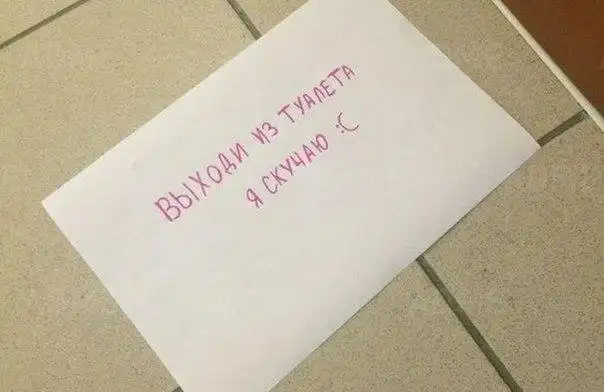 ВЫХОДИ ИЗ ТУАЛЕТА
Я СКУЧАЮ :C